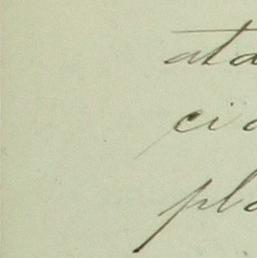 ata
cia
pla